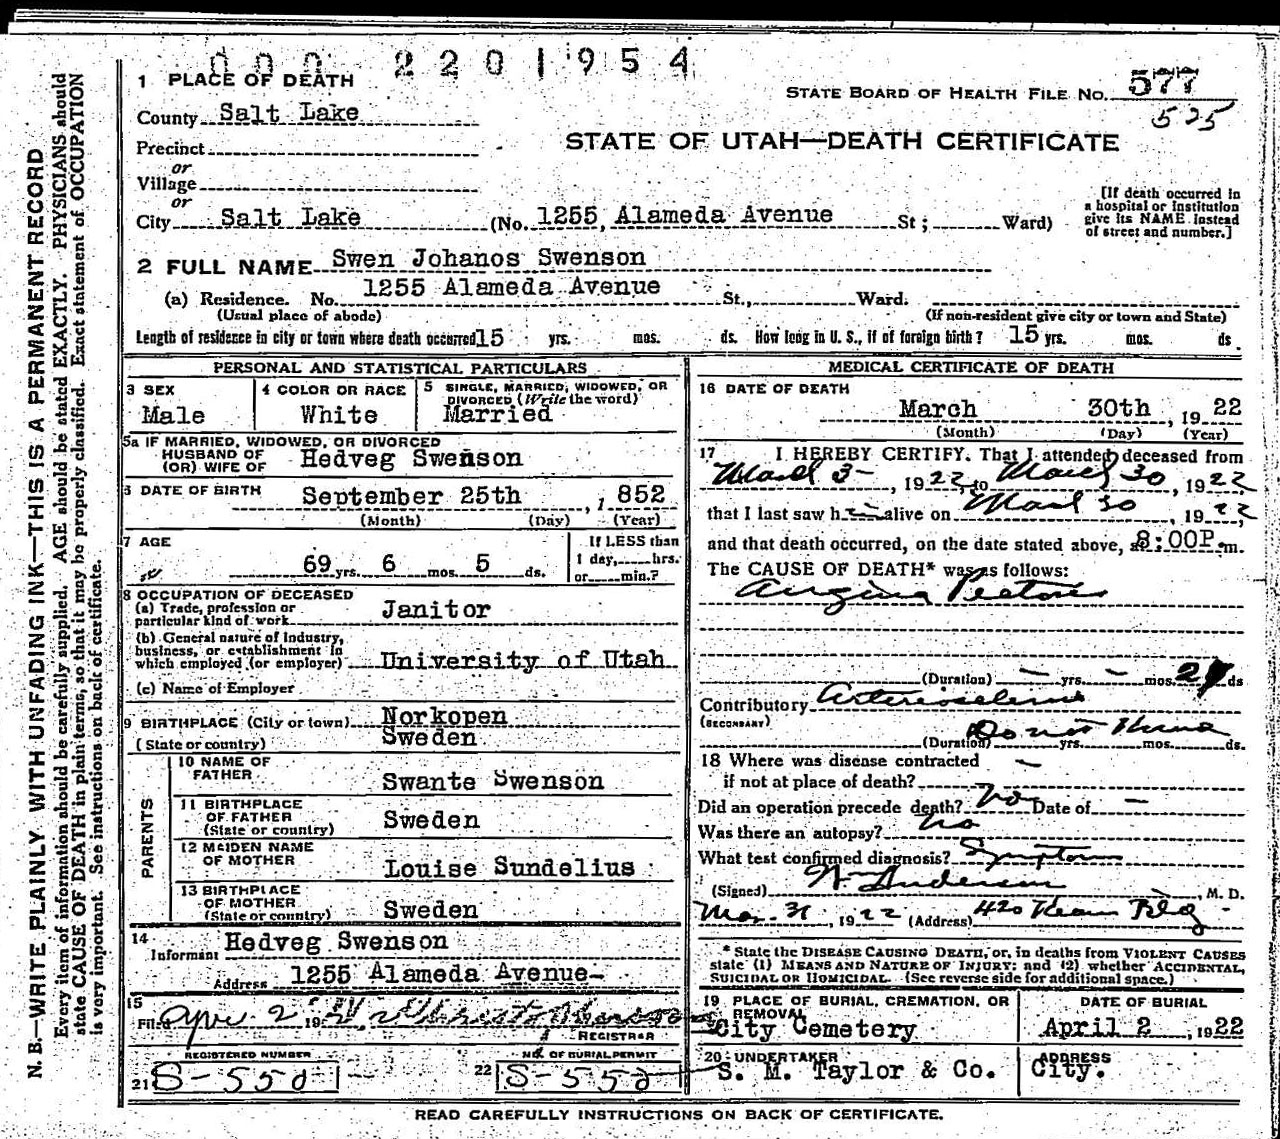 000 2201954
1 PLACE OF DEATH
STATE BOARD OF HEALTH FILE No. 577
County Salt Lake
525
STATE OF UTAH—DEATH CERTIFICATE
Precinct
or
Village
or
City Salt Lake (No. 1255, Alameda Avenue St; Ward)
[If death occurred in a hospital or institution give its NAME instead of street and number.]
2 FULL NAME Swen Johanos Swenson
(a) Residence. No. 1255 Alameda Avenue St., Ward.
(Usual place of abode) (If non-resident give city or town and State)
Length of residence in city or town where death occurred 15 yrs. mos. ds. How long in U. S., if of foreign birth? 15 yrs. mos. ds.
PERSONAL AND STATISTICAL PARTICULARS
3 SEX
Male
4 COLOR OR RACE
White
5 SINGLE, MARRIED, WIDOWED, OR
DIVORCED (Write the word)
Married
5a IF MARRIED, WIDOWED, OR DIVORCED
HUSBAND OF
(OR) WIFE OF Hedveg Swenson
6 DATE OF BIRTH September 25th, 1852
(Month) (Day) (Year)
7 AGE
69 yrs. 6 mos. 5 ds.
If LESS than
1 day, hrs.
or min.?
8 OCCUPATION OF DECEASED
(a) Trade, profession or
particular kind of work Janitor
(b) General nature of Industry,
business, or establishment in
which employed (or employer) University of Utah
(c) Name of Employer
9 BIRTHPLACE (City or town) Norkopen
(State or country) Sweden
PARENTS
10 NAME OF
FATHER Swante Swenson
11 BIRTHPLACE
OF FATHER
(State or country) Sweden
12 MAIDEN NAME
OF MOTHER Louise Sundelius
13 BIRTHPLACE
OF MOTHER
(State or country) Sweden
14
Informant Hedveg Swenson
Address 1255 Alameda Avenue-
15
Filed Apr. 2 1922
REGISTRAR
REGISTERED NUMBER
21 S-550
NO. OF BURIAL PERMIT
22 S-550
MEDICAL CERTIFICATE OF DEATH
16 DATE OF DEATH
March 30th, 1922
(Month) (Day) (Year)
17 I HEREBY CERTIFY. That I attended deceased from
March 3-, 1922, to March 30, 1922
that I last saw him alive on March 30, 1922,
and that death occurred, on the date stated above, at 8:00P.m.
The CAUSE OF DEATH* was as follows:
Angina Pectoris
(Duration) — yrs. — mos. ds
Contributory Arteriosclerosis
(SECONDARY)
(Duration) Do not Know yrs. mos. ds.
18 Where was disease contracted
if not at place of death? —
Did an operation precede death? No Date of —
Was there an autopsy? No
What test confirmed diagnosis? Symptoms
(Signed) Wm Anderson, M. D.
Mar. 31, 1922 (Address) 420 Kearns Bldg.
* State the DISEASE CAUSING DEATH, or, in deaths from VIOLENT CAUSES
state (1) MEANS AND NATURE OF INJURY; and (2) whether ACCIDENTAL,
SUICIDAL OR HOMICIDAL. (See reverse side for additional space.)
19 PLACE OF BURIAL, CREMATION, OR
REMOVAL
City Cemetery
DATE OF BURIAL
April 2, 1922
20 UNDERTAKER
S. M. Taylor & Co.
ADDRESS
City.
READ CAREFULLY INSTRUCTIONS ON BACK OF CERTIFICATE.
N. B.—WRITE PLAINLY WITH UNFADING INK—THIS IS A PERMANENT RECORD
Every item of information should be carefully supplied. AGE should be stated EXACTLY. PHYSICIANS should
state CAUSE OF DEATH in plain terms, so that it may be properly classified. Exact statement of OCCUPATION
is very important. See instructions on back of certificate.